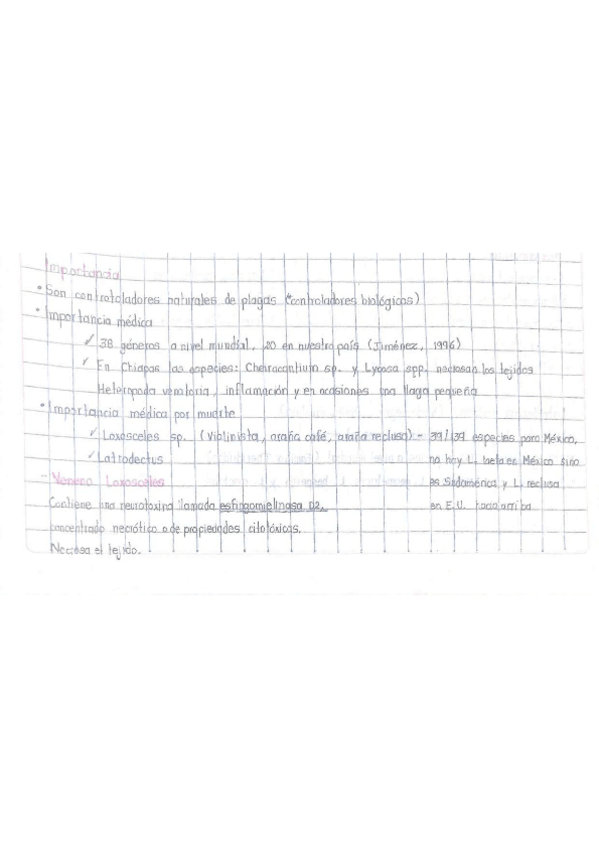 Importancia
• Son controladores naturales de plagas (controladores biológicos)
• Importancia médica
✓ 38 géneros a nivel mundial, 20 en nuestro país (Jiménez, 1996)
✓ En Chiapas las especies: Cheiracantium sp. y Lycosa spp. necrosan los tejidos
Heteropoda venatoria, inflamación y en ocasiones una llaga pequeña
• Importancia médica por muerte
✓ Loxosceles sp. (Violinista, araña café, araña reclusa) - 39/139 especies para México,
✓ Latrodectus no hay L. laeta es México sino
- Veneno Loxosceles es Sudamérica y L. reclusa
Contiene una neurotoxina llamada esfingomielinasa D2, en E.U. hacia arriba
concentrado necrótico o de propiedades citotóxicas.
Necrosa el tejido.